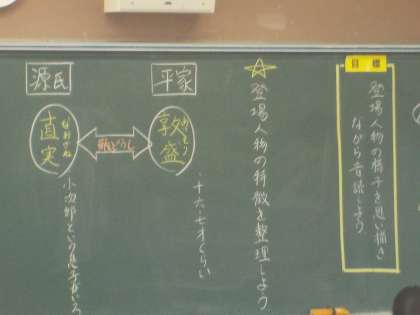 目標
登場人物の様子を思い描き
ながら音読しよう
☆登場人物の特徴を整理しよう
平家
敦盛
あつもり
・十六、七才くらい
敵どうし
源氏
直実
なおざね
小次郎という息子がいる